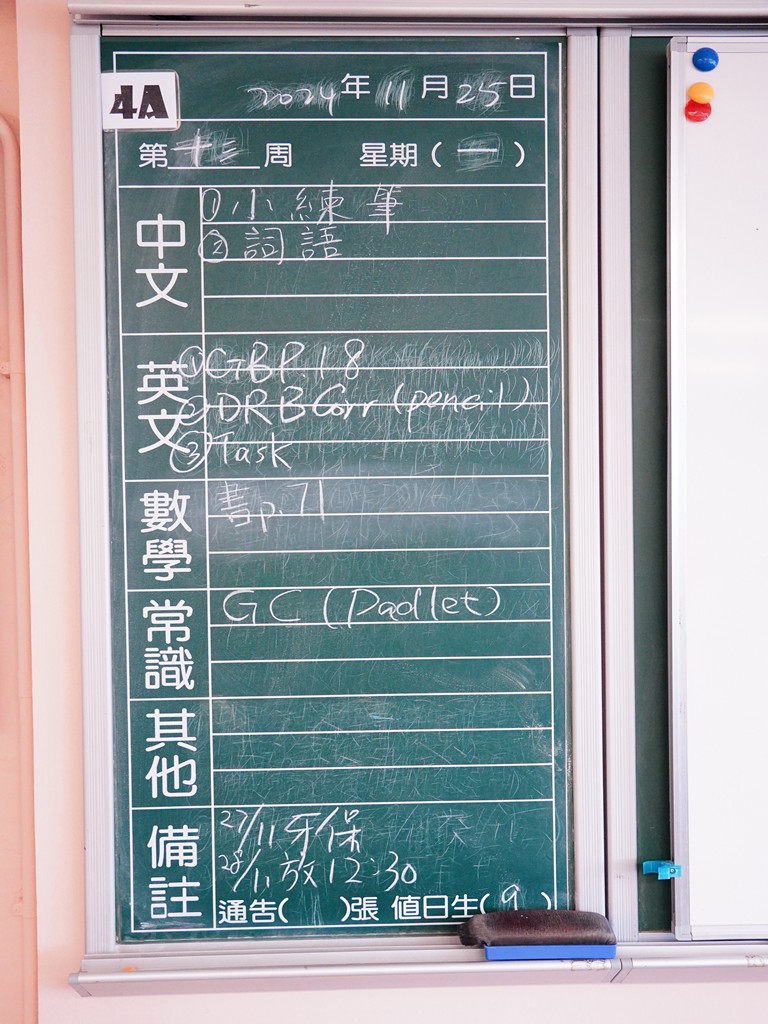 4A
2024年11月25日
第十三周 星期(一)
中文
①小練筆
②詞語
英文
①GBP.18
②DRB Corr (pencil)
③Task
數學
書p.71
常識
GC (Padlet)
其他
備註
27/11 牙保
28/11 放12:30
通告( )張 值日生(9)